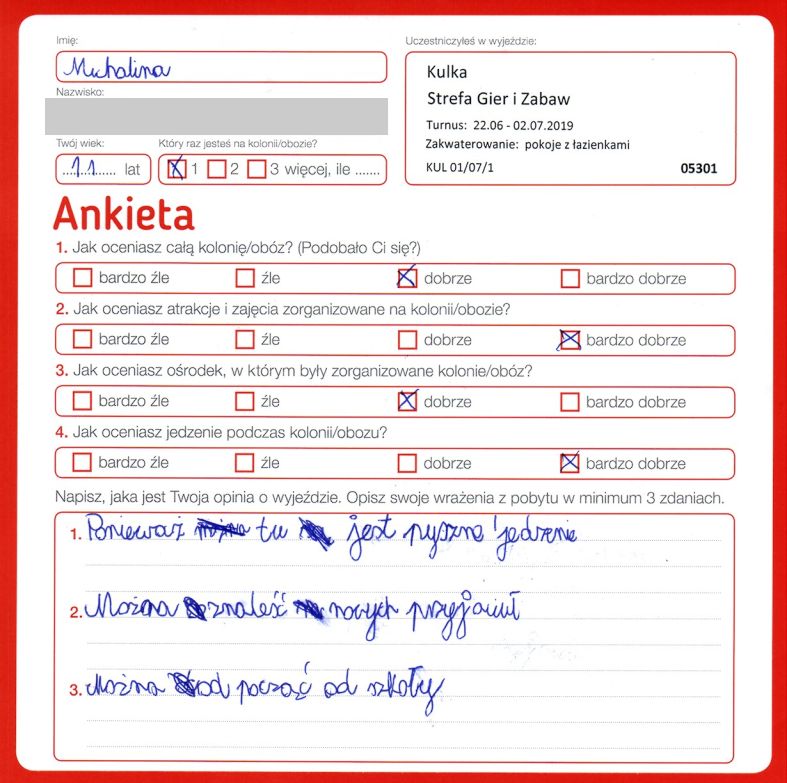 Imię:
Michalina
Nazwisko:
Twój wiek:
11 lat
Który raz jesteś na kolonii/obozie?
1 2 3 więcej, ile .......
Uczestniczyłeś w wyjeździe:
Kulka
Strefa Gier i Zabaw
Turnus: 22.06 - 02.07.2019
Zakwaterowanie: pokoje z łazienkami
KUL 01/07/1 05301
Ankieta
1. Jak oceniasz całą kolonię/obóz? (Podobało Ci się?)
bardzo źle źle dobrze bardzo dobrze
2. Jak oceniasz atrakcje i zajęcia zorganizowane na kolonii/obozie?
bardzo źle źle dobrze bardzo dobrze
3. Jak oceniasz ośrodek, w którym były zorganizowane kolonie/obóz?
bardzo źle źle dobrze bardzo dobrze
4. Jak oceniasz jedzenie podczas kolonii/obozu?
bardzo źle źle dobrze bardzo dobrze
Napisz, jaka jest Twoja opinia o wyjeździe. Opisz swoje wrażenia z pobytu w minimum 3 zdaniach.
1. Ponieważ tu jest pyszne jedzenie
2. Można znaleść nowych przyjaciuł
3. Można od począć od szkoły